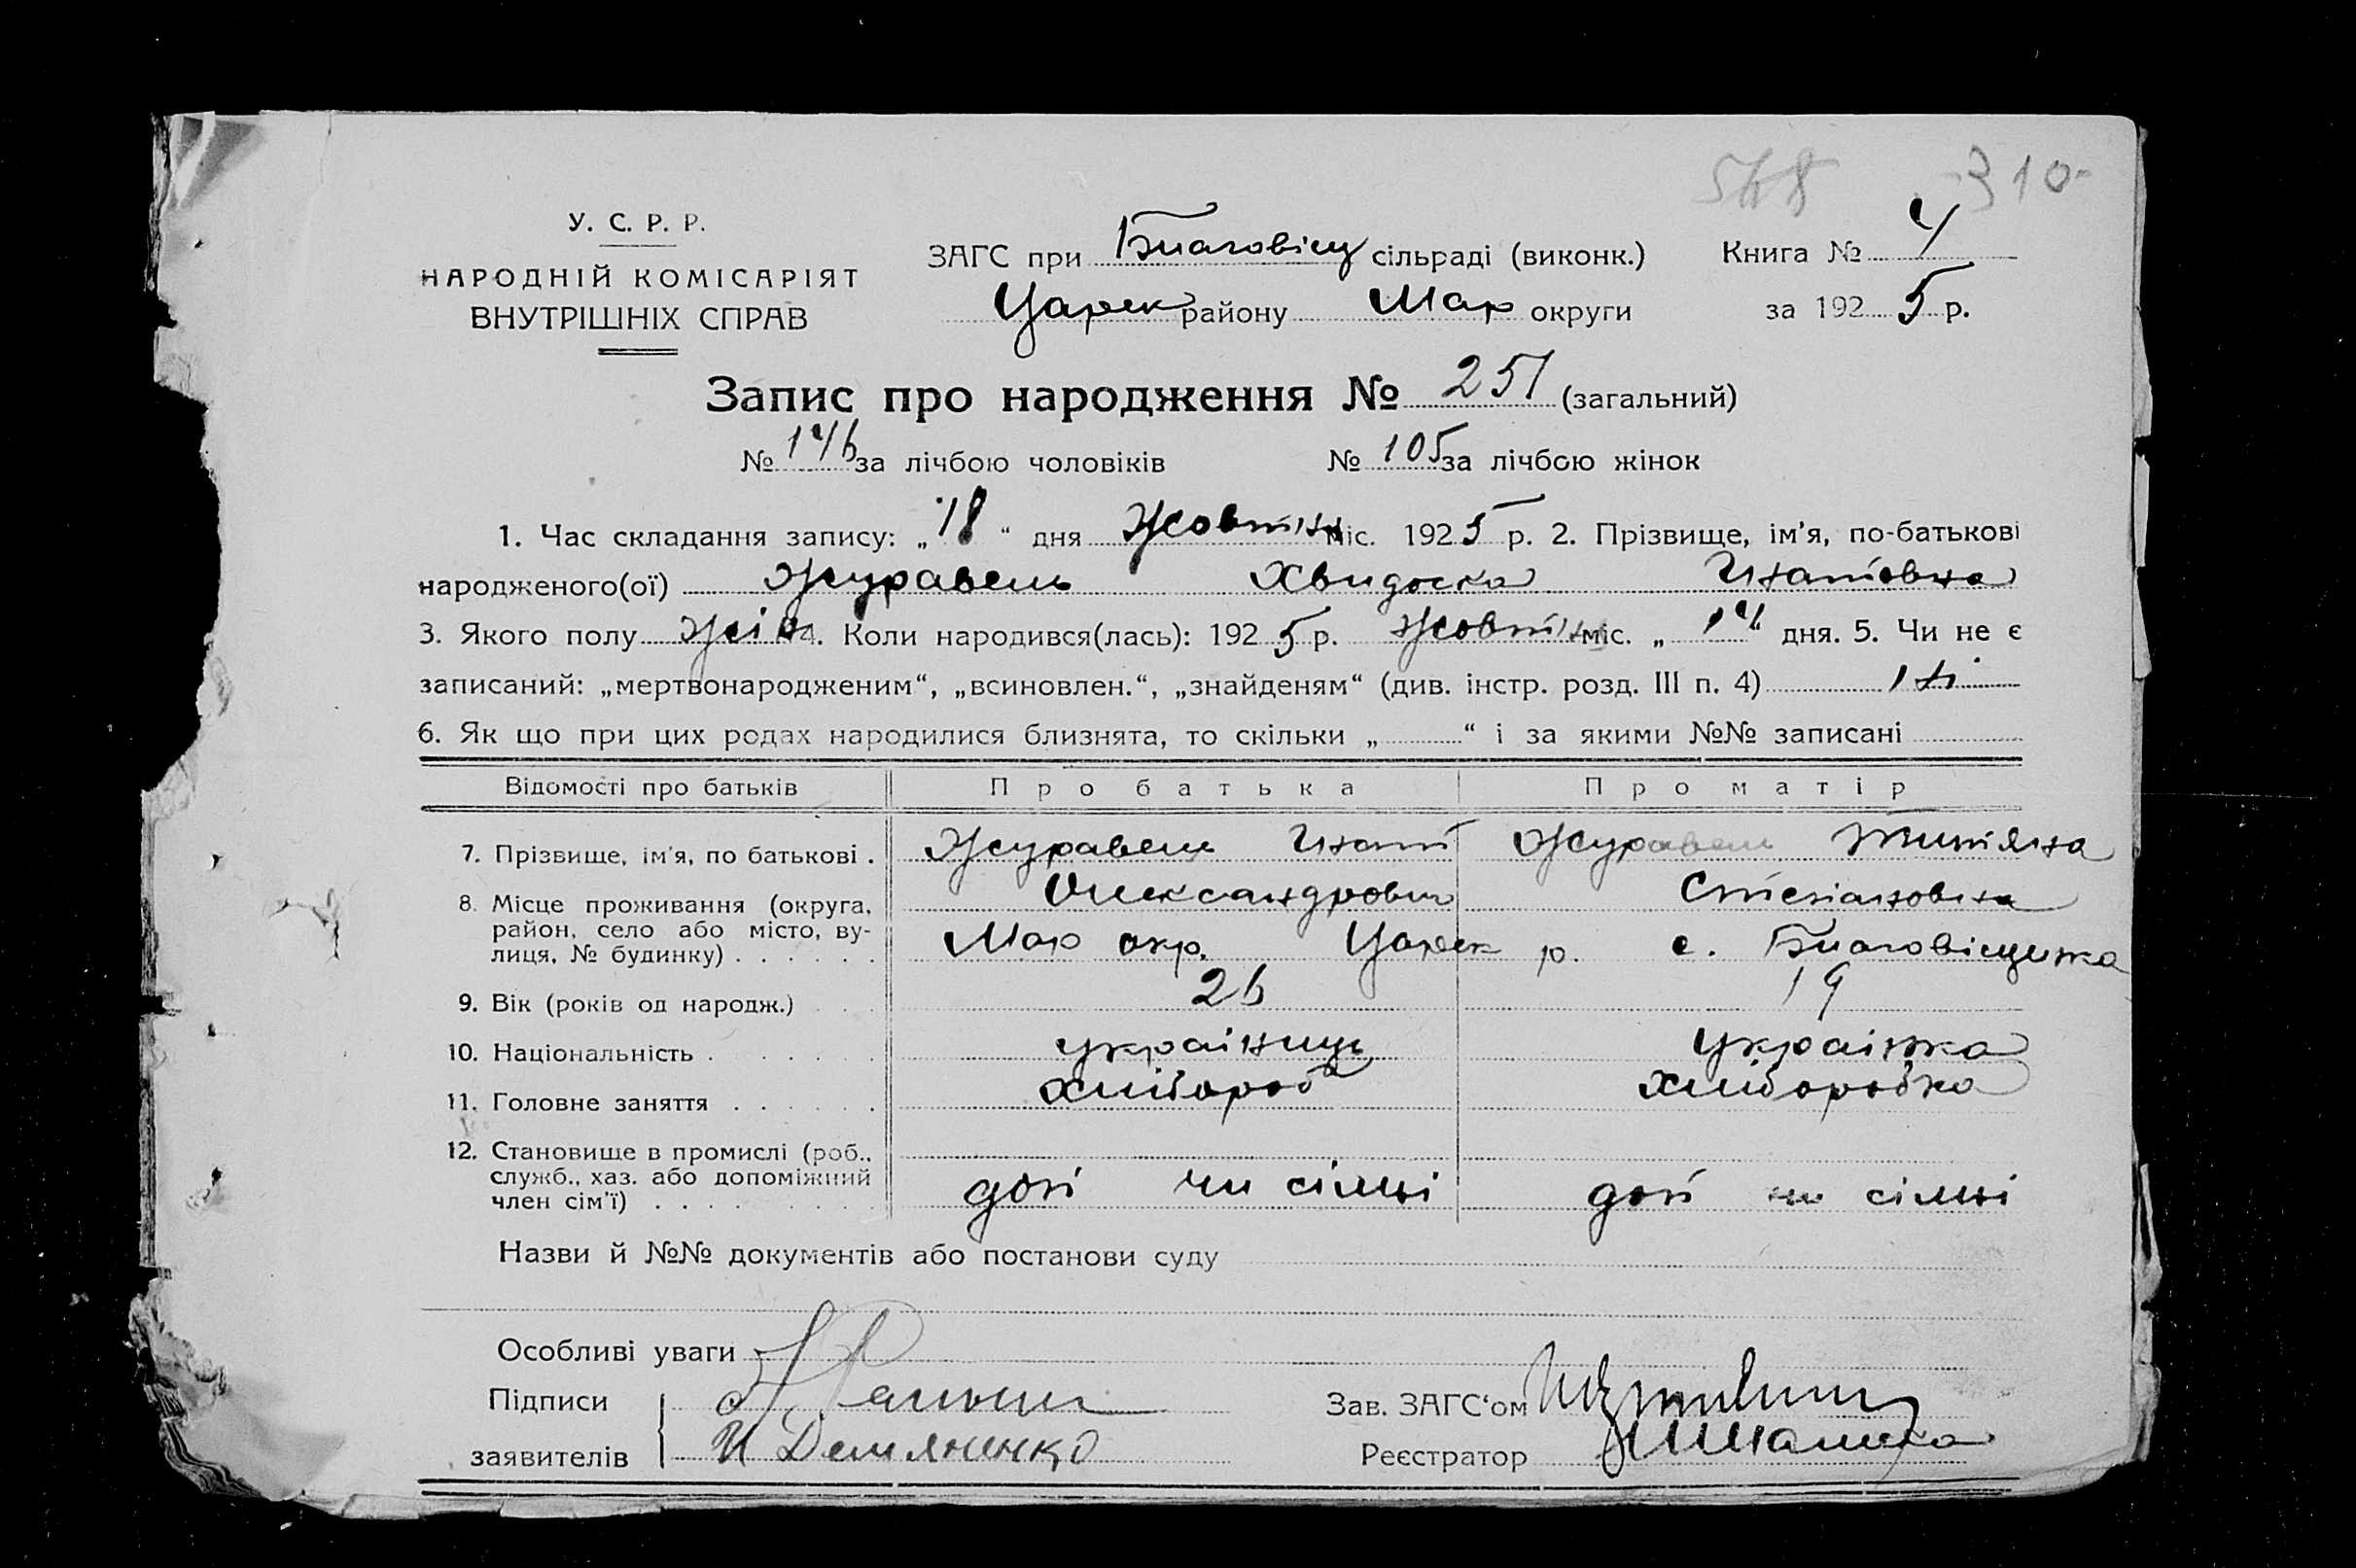 548 310
У. С. Р. Р.
НАРОДНІЙ КОМІСАРІЯТ
ВНУТРІШНІХ СПРАВ
ЗАГС при Благовіщ сільраді (виконк.) Книга № 4
Царек району Мар округи за 1925 р.
Запис про народження № 251 (загальний)
№ 146 за лічбою чоловіків № 105 за лічбою жінок
1. Час складання запису: „18“ дня Жовтня міс. 1925 р. 2. Прізвище, ім’я, по-батькові
народженого(ої) Журавель Хвидоска Игнатовна
3. Якого полу жін 4. Коли народився(лась): 1925 р. Жовтня міс. „14“ дня. 5. Чи не є
записаний: „мертвонародженим“, „всиновлен.“, „знайденям“ (див. інстр. розд. III п. 4) ні
6. Як що при цих родах народилися близнята, то скільки „ “ і за якими №№ записані
Відомості про батьків Про батька Про матір
7. Прізвище, ім’я, по батькові . Журавель Игнат Журавель
Олександрович Степановна
8. Місце проживання (округа, район, село або місто, вулиця, № будинку) . . . . . . Мар окр. Царек р. с. Благовіщенка
9. Вік (років од народж.) . . . 26 19
10. Національність . . . . . . україниць українка
11. Головне заняття . . . . . . хлібороб хліборобка
12. Становище в промислі (роб., служб., хаз. або допоміжний член сім’ї) . . . . . . . . . доп чл сімні доп чл сімні
Назви й №№ документів або постанови суду
Особливі уваги
Підписи Зав. ЗАГС‘ом
заявителів И Демяненко Реєстратор